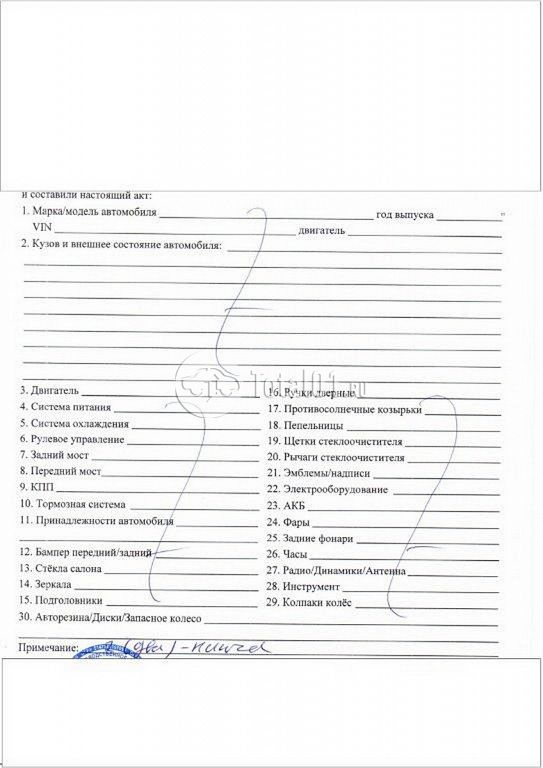 и составили настоящий акт:
1. Марка/модель автомобиля год выпуска
VIN двигатель
2. Кузов и внешнее состояние автомобиля:
Total01.ru
3. Двигатель
4. Система питания
5. Система охлаждения
6. Рулевое управление
7. Задний мост
8. Передний мост
9. КПП
10. Тормозная система
11. Принадлежности автомобиля
12. Бампер передний/задний
13. Стёкла салона
14. Зеркала
15. Подголовники
16. Ручки дверные
17. Противосолнечные козырьки
18. Пепельницы
19. Щетки стеклоочистителя
20. Рычаги стеклоочистителя
21. Эмблемы/надписи
22. Электрооборудование
23. АКБ
24. Фары
25. Задние фонари
26. Часы
27. Радио/Динамики/Антенна
28. Инструмент
29. Колпаки колёс
30. Авторезина/Диски/Запасное колесо
Примечание: 2 (два) - ключа